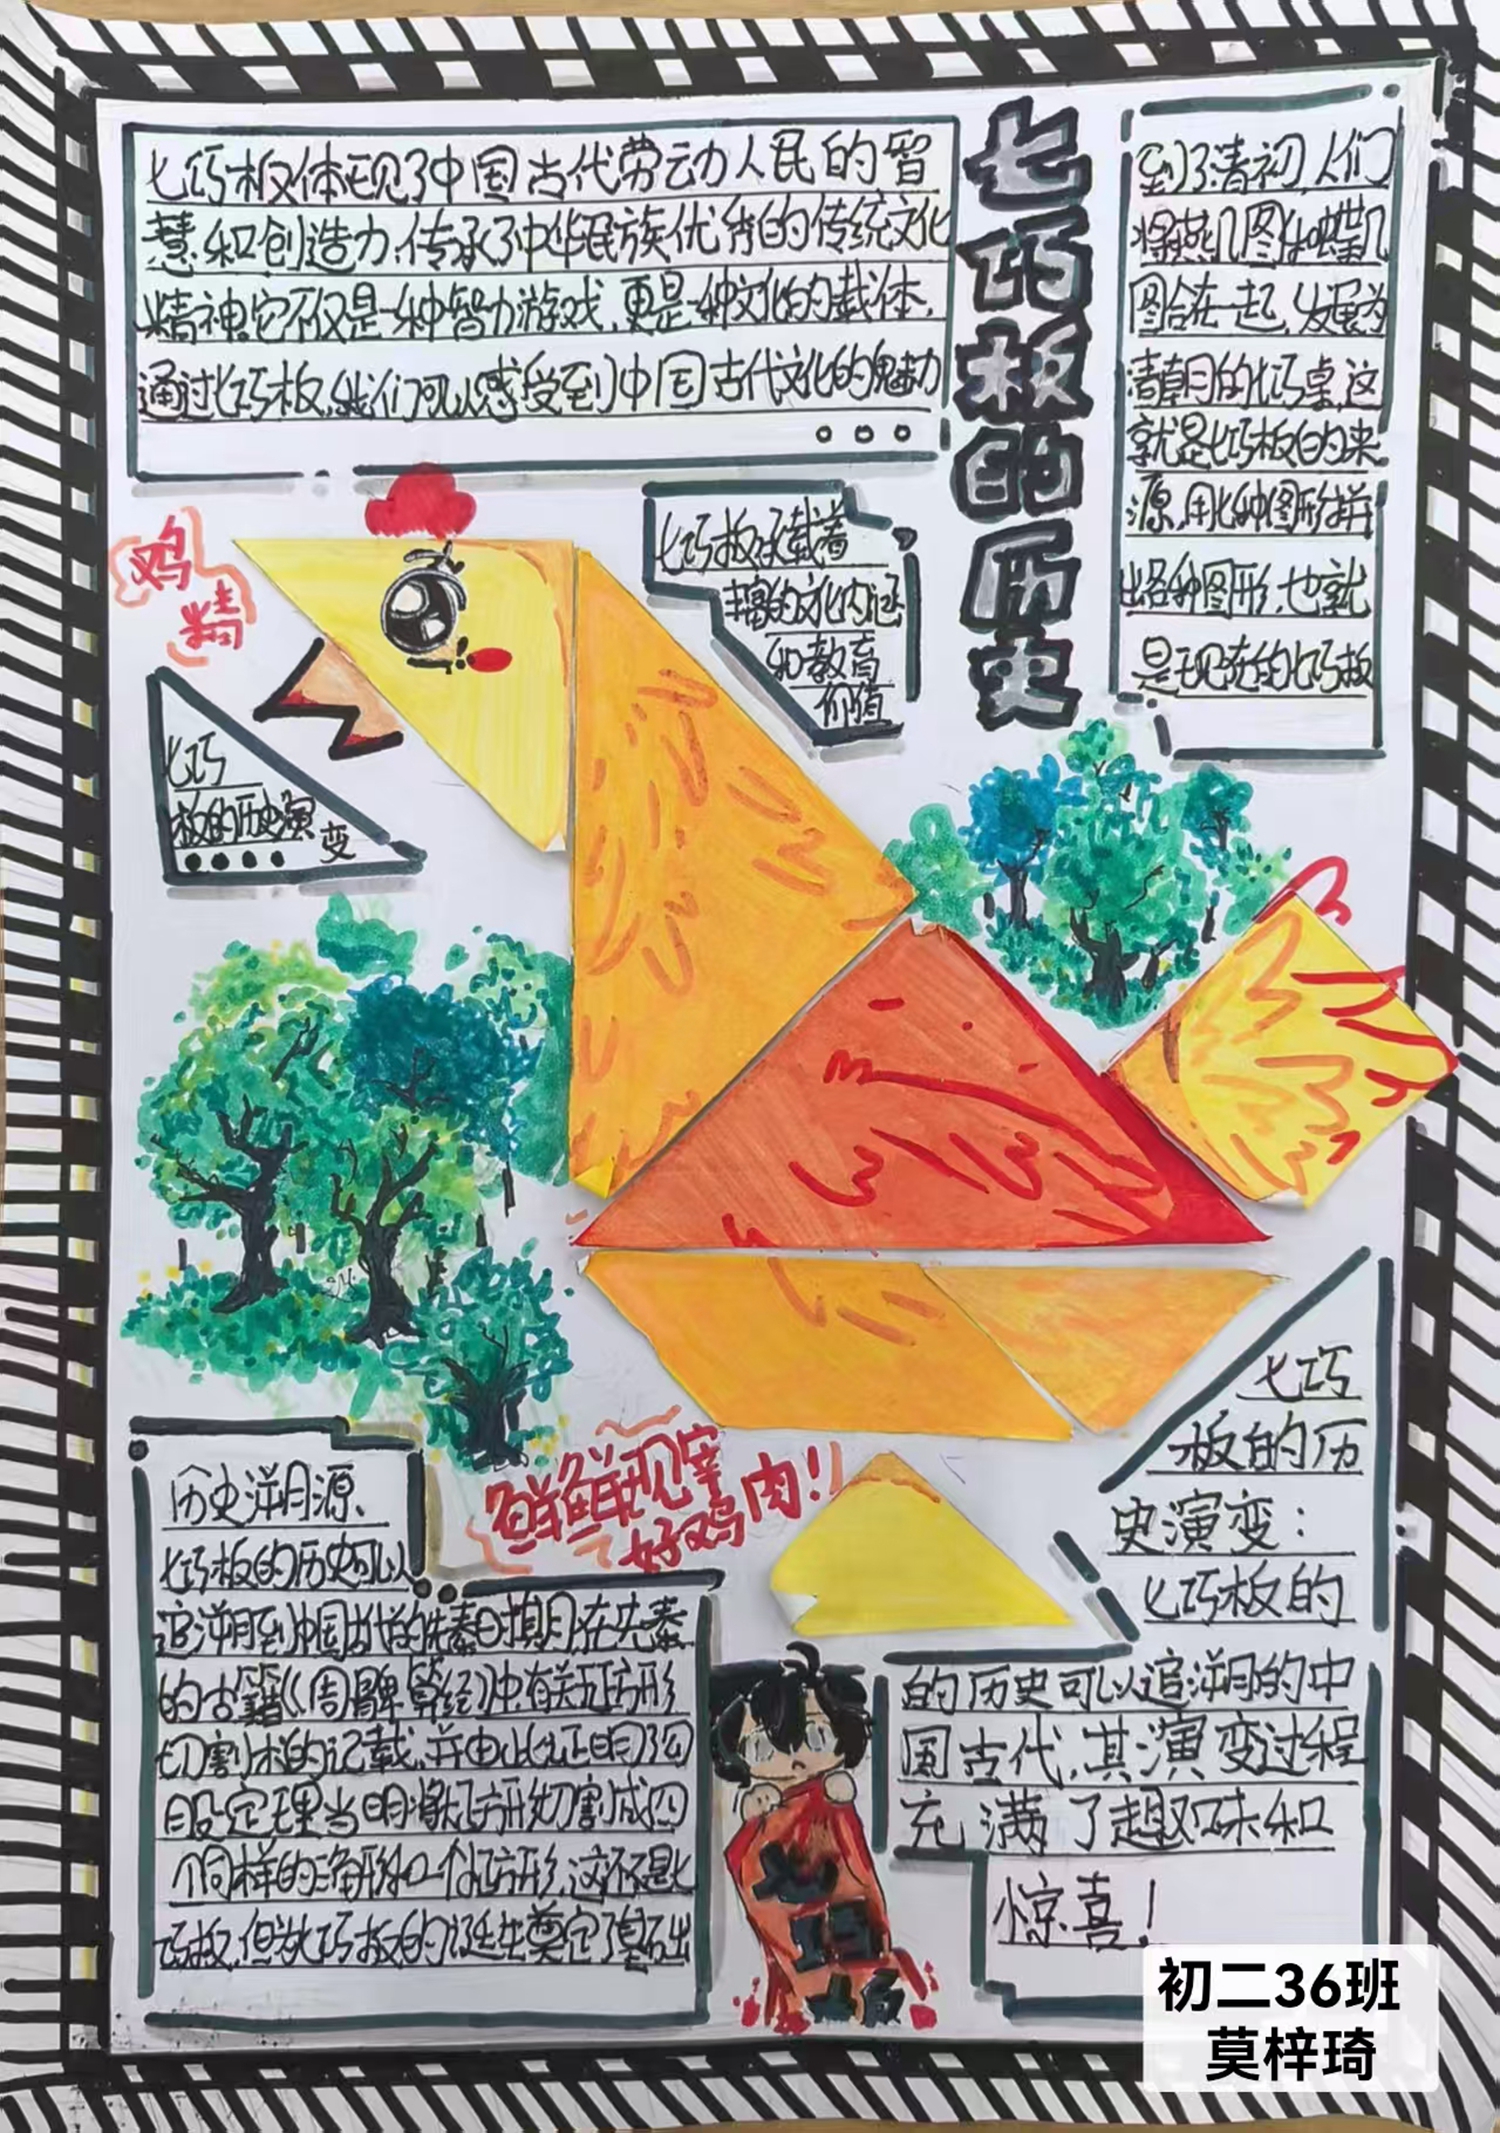 七巧板的历史
七巧板体现了中国古代劳动人民的智
慧和创造力,传承了中华民族优秀的传统文化
精神。它不仅是一种智力游戏,更是一种文化的载体,
通过七巧板,我们可以感受到中国古代文化的魅力
到了清初,人们
将燕几图和蝶几
图合在一起,发展为
清朝的七巧桌,这
就是七巧板的来
源,用七种图形拼
出各种图形,也就
是现在的七巧板
七巧板承载着
丰富的文化内涵
和教育
价值
鸡
精
七巧
板的历史演
变
鲜鲜现宰
好鸡肉!
历史溯源、
七巧板的历史可以
追溯到中国古代的先秦时期在先秦
的古籍《周髀算经》中,有关正方形
切割术的记载,并由此证明了勾
股定理当时将正方形切割成四
个同样的三角形和一个正方形,这不是七
巧板,但为七巧板的诞生奠定了基石出
七巧
板的历
史演变:
七巧板的
的历史可以追溯的中
国古代,其演变过程
充满了趣味和
惊喜!
初二36班
莫梓琦